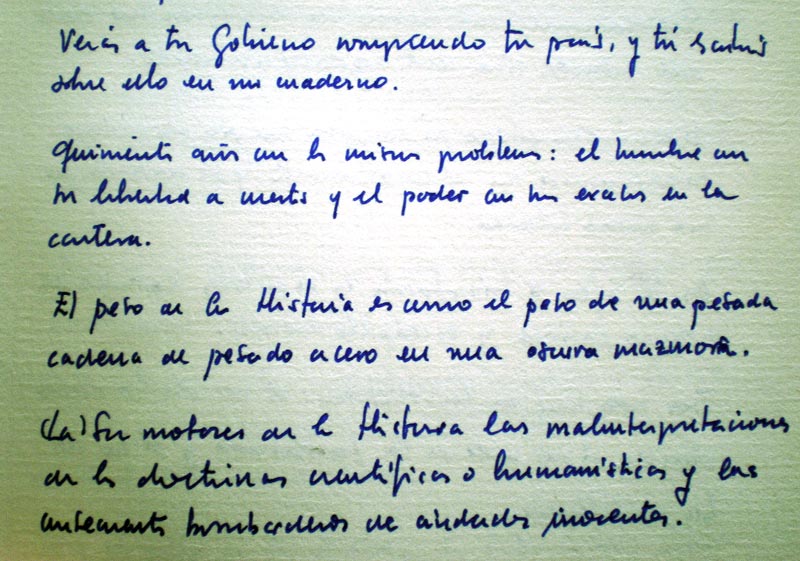 Verás a tu Gobierno rompiendo tu país, y tú escribirás
sobre ello en un cuaderno.
Quinientos años con los mismos problemas: el hombre con
su libertad a cuestas y el poder con sus en la
cartera.
El peso de la Historia es como el peso de una pesada
cadena de pesado acero en una oscura mazmorra.
(La) Son motores de la Historia las malinterpretaciones
de las doctrinas científicas o humanísticas y los
bombardeos de ciudades inocentes.